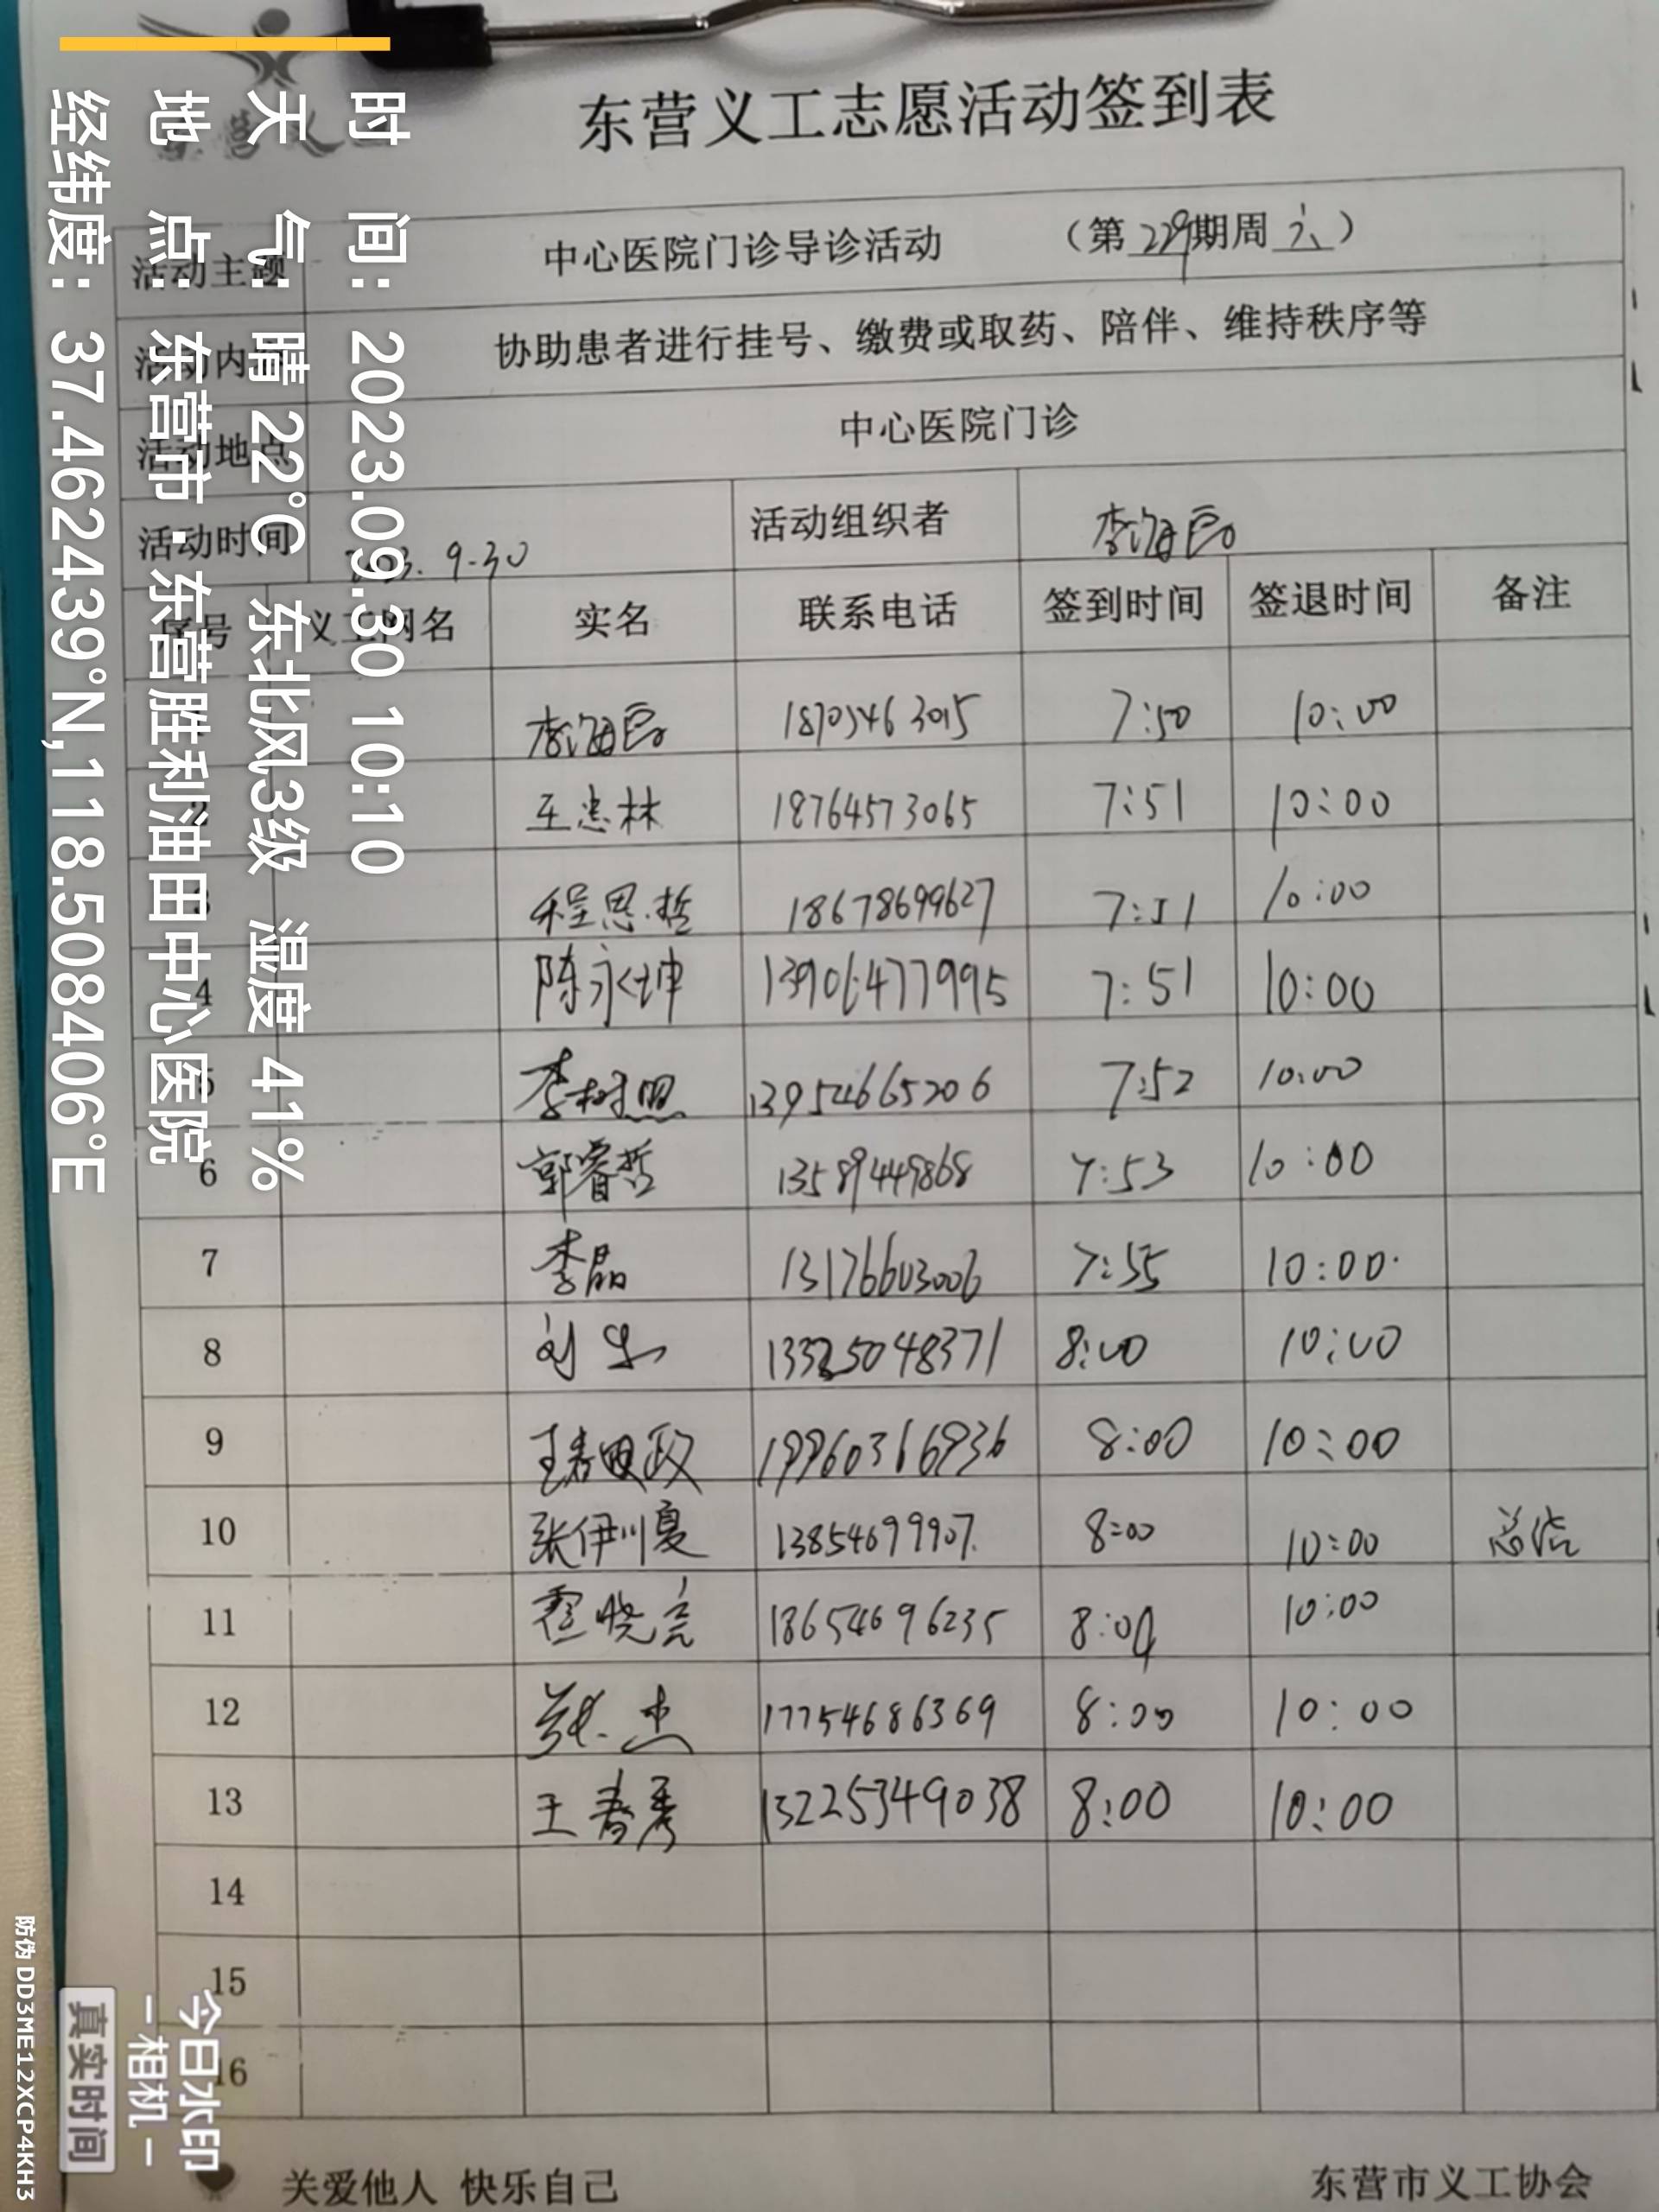 东营义工志愿活动签到表
活动主题 中心医院门诊导诊活动 （第229期周六）
活动内容 协助患者进行挂号、缴费或取药、陪伴、维持秩序等
活动地点 中心医院门诊
活动时间 2023.9.30 活动组织者
序号 义工网名 实名 联系电话 签到时间 签退时间 备注
1 18705463015 7:50 10:00
2 王忠林 18764573065 7:51 10:00
3 程思哲 18678699627 7:51 10:00
4 陈永坤 13906477995 7:51 10:00
5 李树照 13954665206 7:52 10:00
6 郭睿哲 13589449868 7:53 10:00
7 李晶 13176603006 7:55 10:00
8 刘 13325048371 8:00 10:00
9 19960366936 8:00 10:00
10 张伊川夏 13854699907 8:00 10:00
11 霍晓亮 18654696235 8:00 10:00
12 张杰 17754686369 8:00 10:00
13 王春秀 13225349038 8:00 10:00
14
15
16
关爱他人 快乐自己 东营市义工协会
时 间：2023.09.30 10:10
天 气：晴 22℃ 东北风3级 湿度 41%
地 点：东营市·东营胜利油田中心医院
经纬度：37.462439°N,118.508406°E
今日水印
-相机-
真实时间
防伪 DD3ME12XCP4KH3